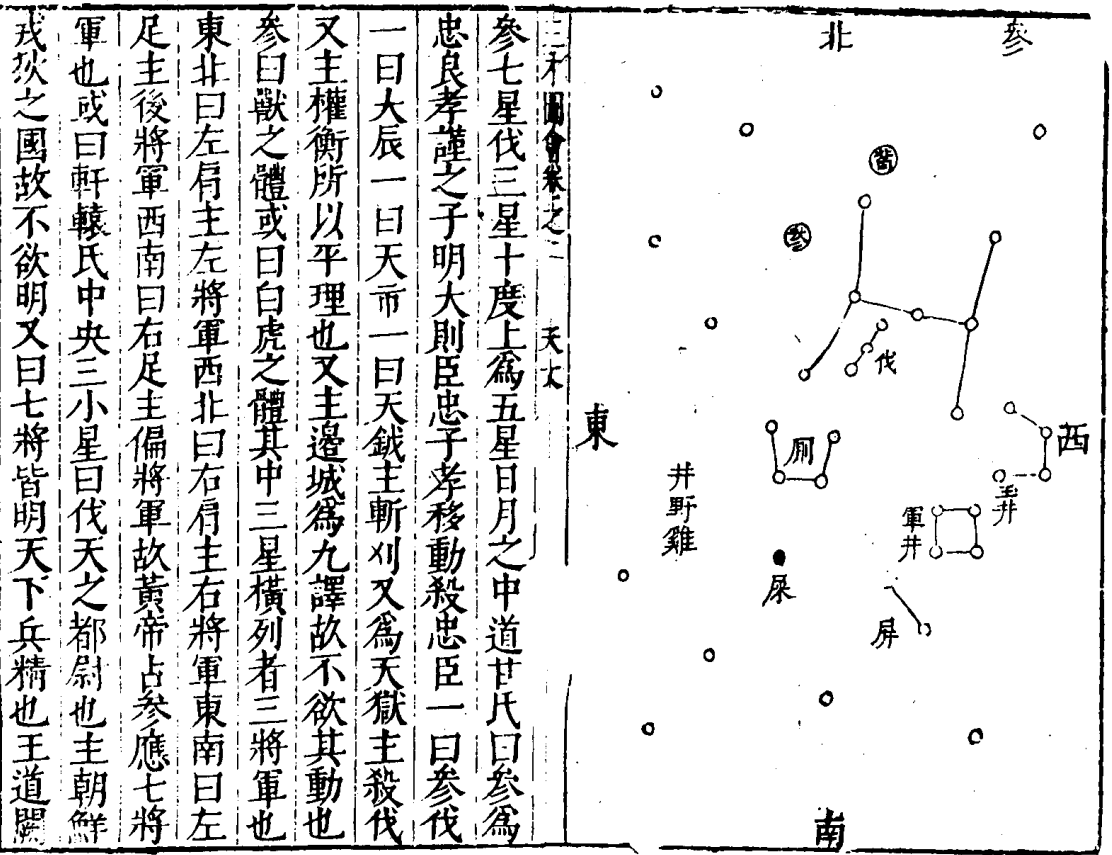 參
北
觜
參
伐
東
西
厠
玉井
軍井
井野雞
屎
屏
南
三才圖會卷之二 天文
參七星伐三星十度上爲五星日月之中道甘氏曰參爲
忠良孝謹之子明大則臣忠子孝移動殺忠臣一曰參伐
一曰大辰一曰天市一曰天鉞主斬刈又爲天獄主殺伐
又主權衡所以平理也又主邊城爲九譯故不欲其動也
參曰獸之體或曰白虎之體其中三星橫列者三將軍也
東北曰左肩主左將軍西北曰右肩主右將軍東南曰左
足主後將軍西南曰右足主偏將軍故黃帝占參應七將
軍也或曰軒轅氏中央三小星曰伐天之都尉也主朝鮮
戎狄之國故不欲明又曰七將皆明天下兵精也王道闕